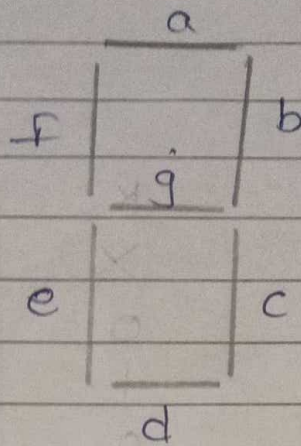 a
f
b
g
e
c
d